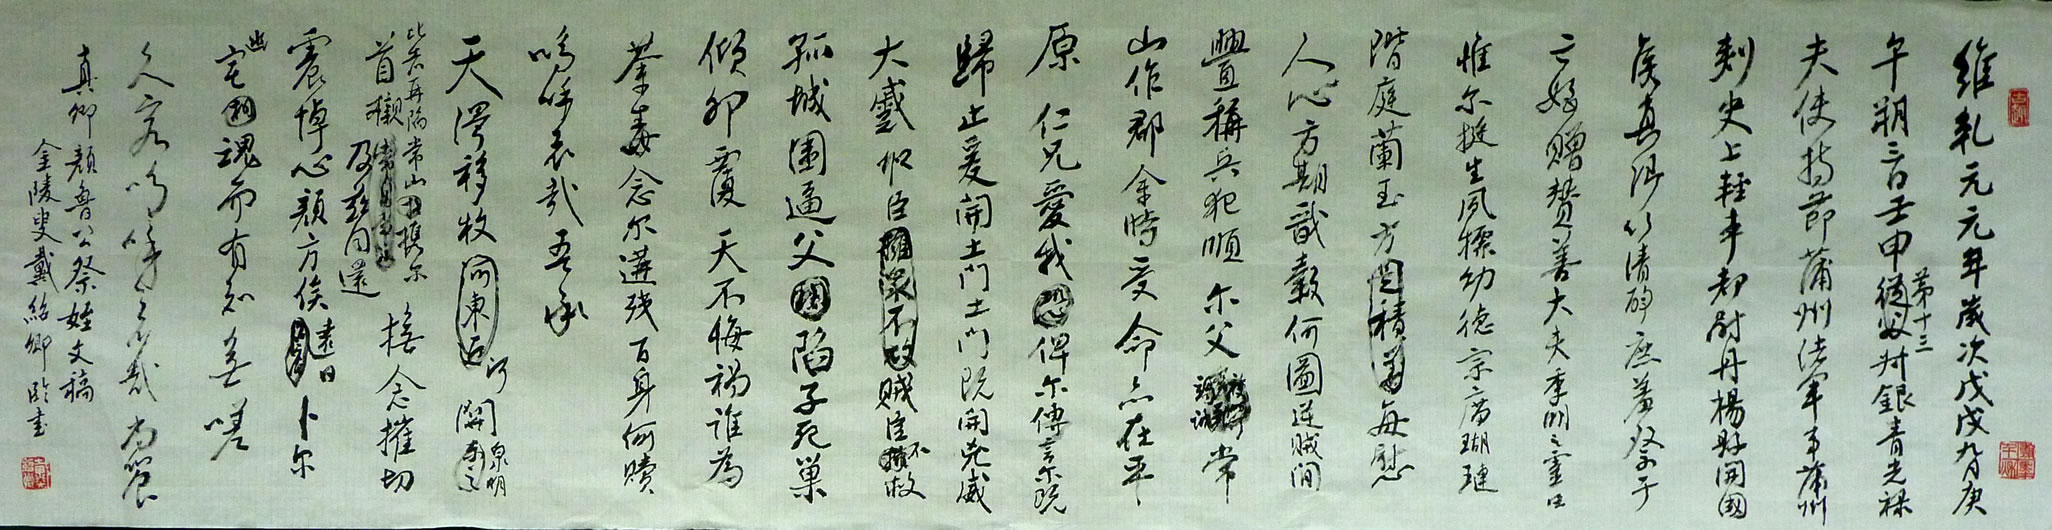 維乾元元年歲次戊戌九月庚
午朔三日壬申第十三從父叔銀青光祿
夫使持節蒲州諸軍事蒲州
刺史上輕車都尉丹楊縣開國
侯真卿以清酌庶羞祭于
亡姪贈贊善大夫季明之靈曰
惟尔挺生夙標幼德宗廟瑚璉
階庭蘭玉方憑積善每慰
人心方期戩穀何圖逆賊間
釁稱兵犯順尔父竭誠常
山作郡余時受命亦在平
原仁兄愛我恐俾尔傳言尔既
歸止爰開土門土門既開兇威
大蹙賊臣擁眾不救賊臣不救
孤城圍逼父陷子死巢
傾卵覆天不悔禍誰為
荼毒念尔遘殘百身何贖
嗚呼哀哉吾承
天澤移牧河東近河關泉明
比者再陷常山攜尔
首櫬及茲同還撫念摧切
震悼心顏方俟遠日卜尔
幽宅魂而有知無嗟
久客嗚呼哀哉尚饗
真卿 顏魯公祭姪文稿
金陵叟戴紹卿臨書